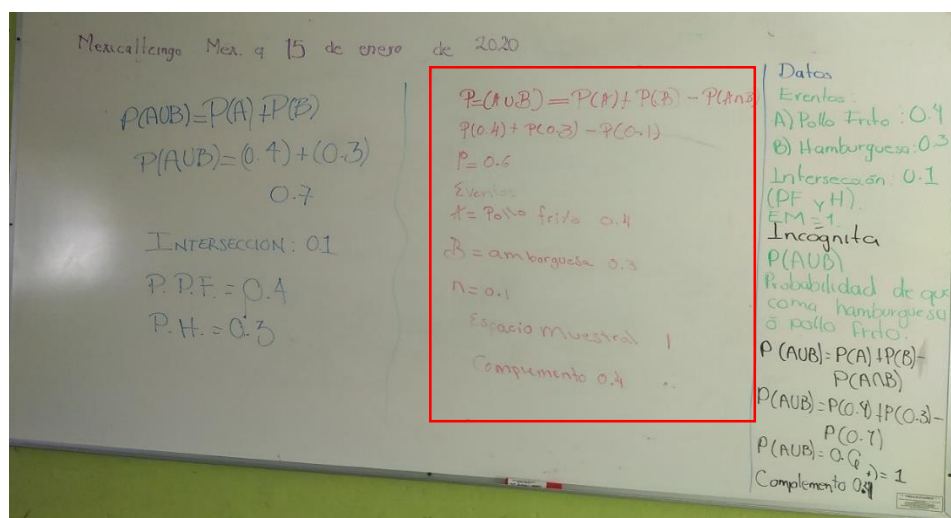 Mexicaltcingo Mex. a 15 de enero de 2020
P(AUB)=P(A)+P(B)
P(AUB)=(0.4)+(0.3)
0.7
INTERSECCION: 0.1
P.P.F. = 0.4
P.H. = 0.3
P=(AUB)=P(A)+P(B)-P(A∩B)
P(0.4)+P(0.3)-P(0.1)
P=0.6
A= Pollo frito 0.4
B = amborguesa 0.3
n=0.1
Espacio muestral 1
Complemento 0.4
Datos
Eventos:
A) Pollo Frito: 0.4
B) Hamburguesa: 0.3
Intersección 0.1
(PF y H).
EM=1.
Incognita
P(AUB)
Probabilidad de que
coma hamburguesa
ó pollo frito.
P(AUB)=P(A)+P(B)-
P(A∩B)
P(AUB)=P(0.4)+P(0.3)-
P(0.1)
P(AUB)=0.6
= 1
Complemento 0.4